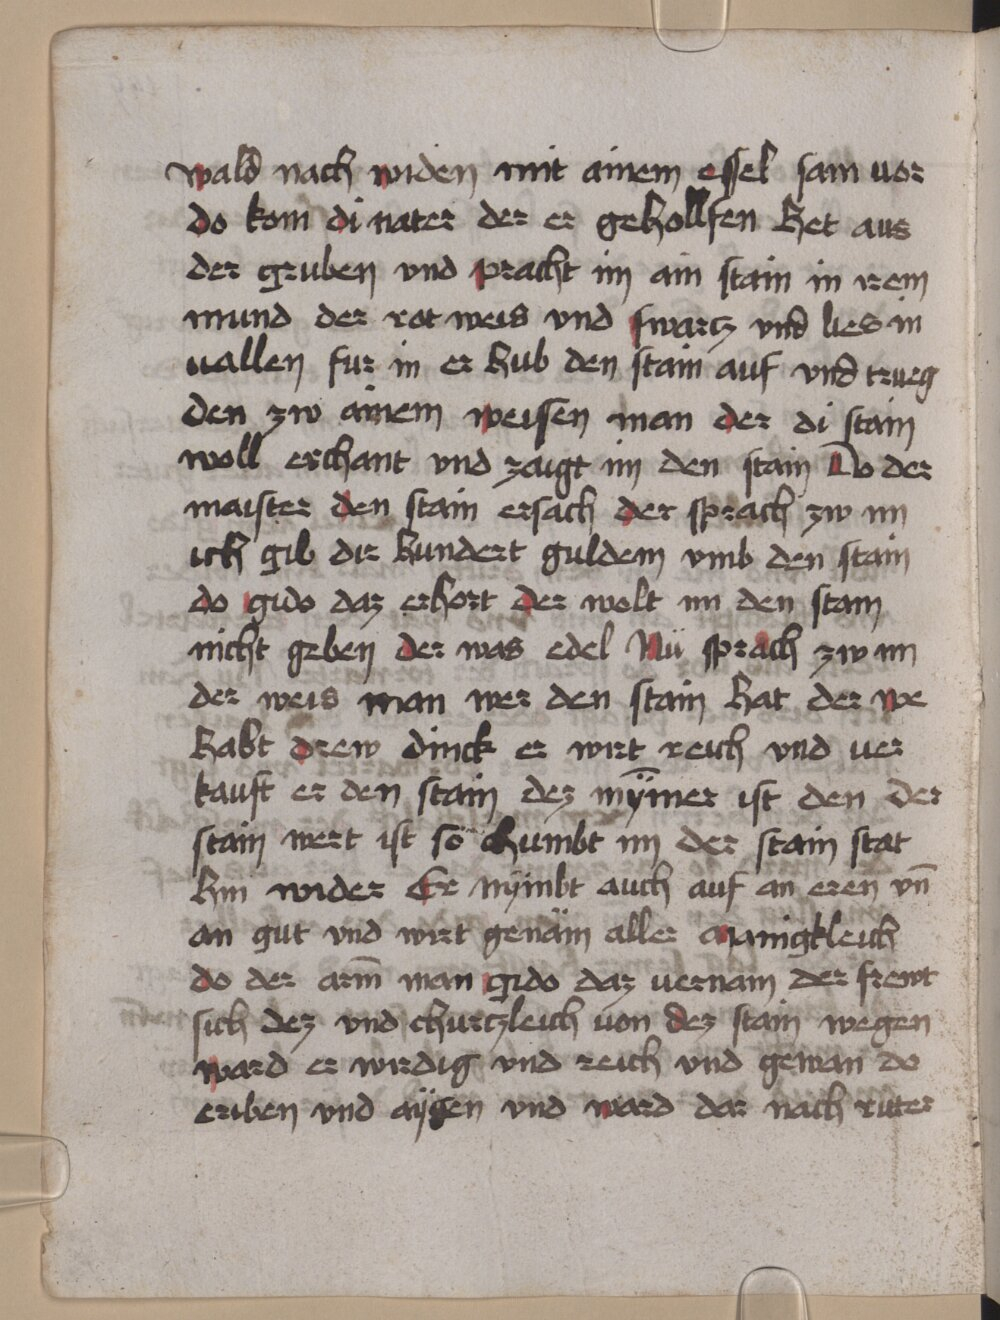 wald nach widen mit ainem essel sam vor
do kom di nater der er gehollfen het aus
der gruben vnd pracht im ain stain in irem
mund der rot weis vnd swarcz vnd lies in
uallen fur in er hub den stain auf vnd trueg
den zw ainem weisen man der di stain
woll erchant vnd zaigt im den stain Do der
maister den stain ersach der sprach zw im
ich gib dir hundert guldein vmb den stain
do gido daz erhort der wolt im den stain
nicht geben der was edel Nu sprach zw im
der weis man wer den stain hat der we
habt drew dinck er wirt reich vnd ver
kauft er den stain dez mỹmer ist den der
stain wert ist so chumbt im der stain stat
hin wider Er nÿmbt auch auf an eren vn̄
an gut vnd wirt genäm aller manigkleich
do der arm̄ man gido daz vernam der frewt
sich dez vnd churczleich von dez stain wegen
ward er wirdig vnd reich vnd gewan do
eriben vnd aÿgen vnd ward dar nach ritter